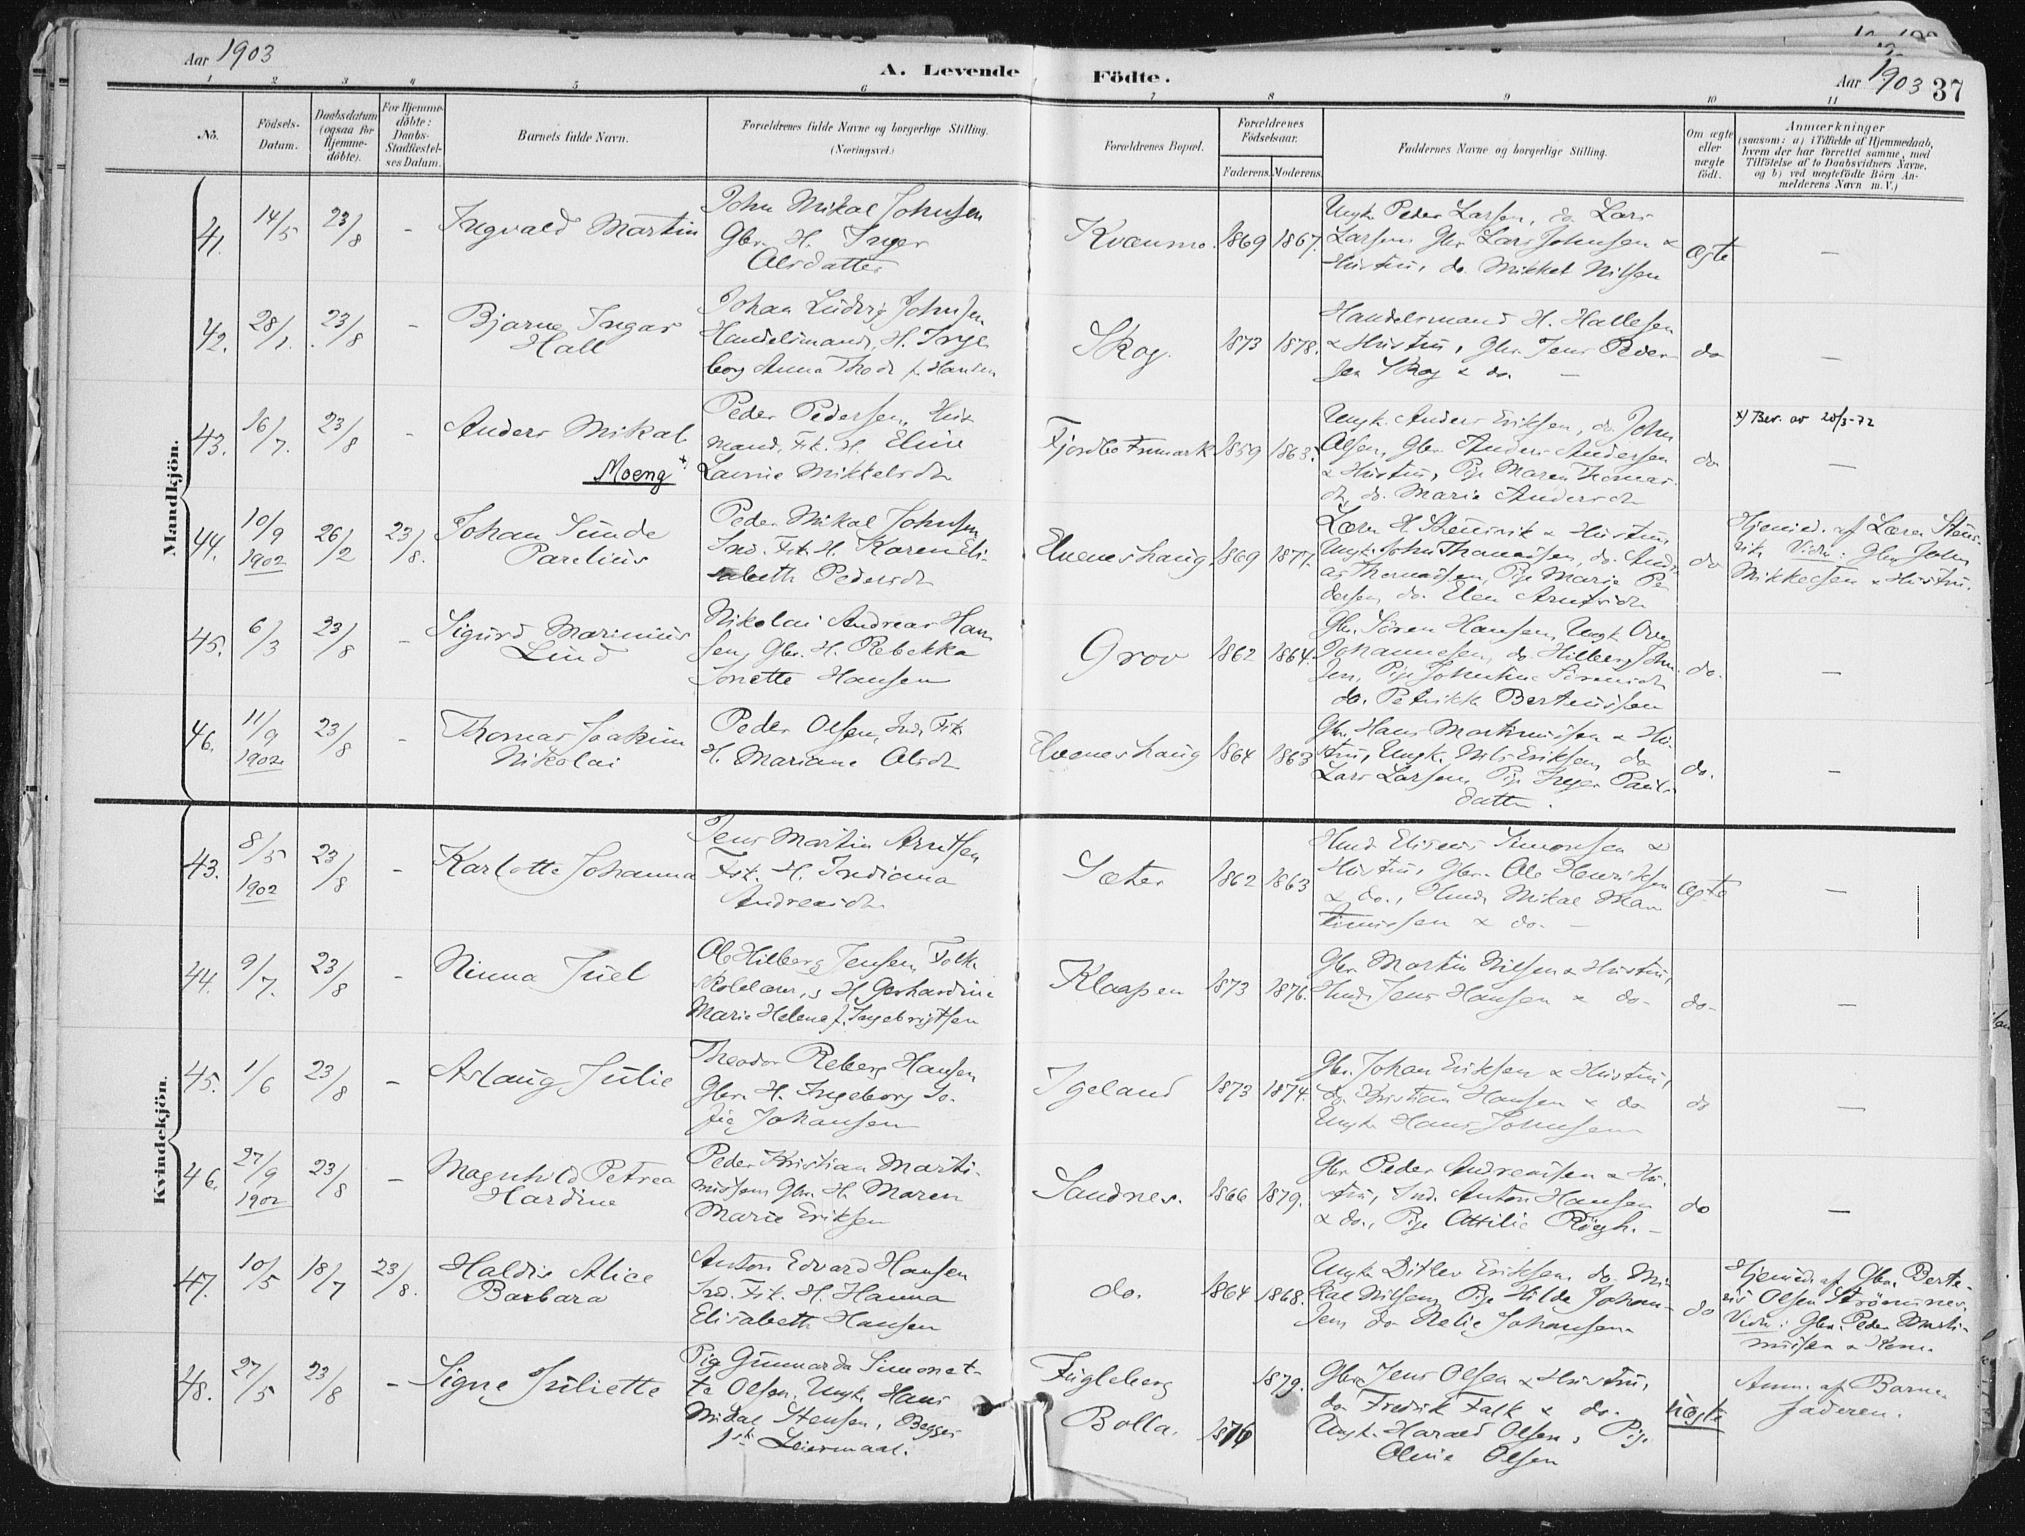 Aar 1903
A. Levende Födte.
Aar 1903 37
1 2 3 4 5 6 7 8 9 10 11
No.
Födsels-Datum.
Daabsdatum (ogsaa for Hjemme-döbte).
For Hjemme-döbte: Daabs-Stadfæstel-ses Datum.
Barnets fulde Navn.
Forældrenes fulde Navne og borgerlige Stilling.
(Næringsvei.)
Forældrenes Bopæl.
Forældrenes Födselsaar.
Faderens. Moderens.
Faddernes Navne og borgerlige Stilling.
Om ægte eller uægte födt.
Anmærkninger
(saasom: a) i Tilfælde af Hjemmedaab, hvem der har forrettet samme, med Tilföielse af to Daabsvidners Navne, og b) ved uægtefödte Börn An-melderens Navn m. V.)
Mandkjön.
41. 14/5 23/8 - Ingvald Martin
John Mikal Johnsen
Gbr. H. Inger
Olsdatter
Kvænmo. 1869 1867.
Ungk. Peder Larsen, do Lars
Larsen, Gbr Lars Johnsen &
Hustru, do. Mikkel Nilsen
ægte —
42. 28/1. 23/8 - Bjarne Ingar
Hall
Johan Ludvig Johnsen
Handelsmand, H. Inge
borg Anna Thode f. Hansen
Skog. 1873 1878.
Handelsmand H. Hallesen
& Hustru, Gbr. Jens Peder
sen Skog & do. —
do —
43. 16/7. 23/8 - Anders Mikal
Moeng x)
Peder Pedersen, Hus
mand, Fsk. H. Eline
Lavine Mikkelsdtr
Fjordbo Finmark 1859 1863.
Ungk. Anders Eriksen, do. John
Olsen, Gbr Anders Andersen
& Hustru, Pige Maren Thomas
dtr, do. Marie Andersdtr
do —
x) Bev. av 20/3-72
44. 10/9 1902 26/2 23/8. Johan Sunde
Parelius
Peder Mikal Johnsen
Ind. Fsk. H. Karen Eli-
sabeth Pedersdtr
Elvenes haug. 1869 1877.
Ungk. John Thomassen, do. And
as Thomassen, Pige Marie Pe
dersen, do. Elen Arntsdtr
do
Hjemmed. af Lærer Stens-
vik. Vidn: Gbr John
Mikkelsen & Hustru.
45. 6/3 23/8 - Sigurd Marinius
Lind
Nikolai Andreas Han
sen, Gbr. H. Rebekka
Jonette Hansen
Grov 1862 1864.
Gbr. Sören Hansen, Ungk Ove
Johannesen, do. Hilberg John
sen, Pige Johntine Sörensdtr
do. Petrikke Berteussen
do. —
46. 11/9 1902 23/8 - Thomas Joakim
Nikolai
Peder Olsen, Ind. Fsk
H. Mariane Olsdtr
Elvenes haug 1864 1863
Gbr. Hans Martinussen & Hu-
stru, Ungk. Nils Eriksen, do
Lars Larsen, Pige Inger Pauls
datter.
do. —
Kvindekjön.
43. 8/5 1902 23/8 - Karlotte Johanna
Jens Martin Arntsen
Fsk. H. Indiana
Andreasdtr
Sæter 1862 1863
Hmd Eliseus Simonsen &
Hustru, Gbr. Ole Henriksen
& do., Hmd. Mikal Mar
tinussen & do. —
ægte —
44. 9/7. 23/8 - Ninna Juel
Ole Hilberg Jensen, Folke
skolelærer, H. Gerhardine
Marie Helene f. Ingebrigtsen
Klaapen 1873 1876.
Gbr. Martin Nilsen & Hustru,
Hmd. Jens Hansen & do-
do- —
45. 1/6 23/8 - Aslaug Julie
Theodor Reberg Hansen
Gbr. H. Ingeborg So-
fie Johansen
Igeland 1873 1874.
Gbr. Johan Eriksen & Hustru,
do. Kristian Hansen & do
Ungk. Hans Johnsen
do —
46. 27/9 1902 23/8 - Magnhild Petrea
Hardine
Peder Kristian Marti-
nussen, Gbr. H. Maren
Marie Eriksen
Sandnes. 1866 1879.
Gbr. Peder Andreassen & Hu-
stru, Ind. Anton Hansen
& do., Pige Ottilie Röegh. —
do —
47. 10/5 18/7 23/8. Haldis Alice
Barbara
Anton Edvard Hansen
Ind. Fsk. H. Hanna
Elisabeth Hansen
do. 1864 1868.
Ungk. Ditlev Eriksen, do. Mi
kal Nilsen, Pige Hilda Johan-
sen, do Nelie Johansen
do
Hjemmed. af Gbr. Berte-
us Olsen Strömnes.
Vidn: Gbr. Peder Marti-
nussen & Kone.
48. 27/5 23/8 - Signe Juliette
Pige Gunnarda Simonet-
te Olsen. Ungk. Hans
Mikal Stensen, Begges
1ste Leiermaal.
Fugleberg 1879.
Bolla. 1876
Gbr. Jens Olsen & Hustru,
do Fredrik Falk & do.
Ungk. Harald Olsen, Pige
Oline Olsen
uægte
Anm. af Barne
faderen.